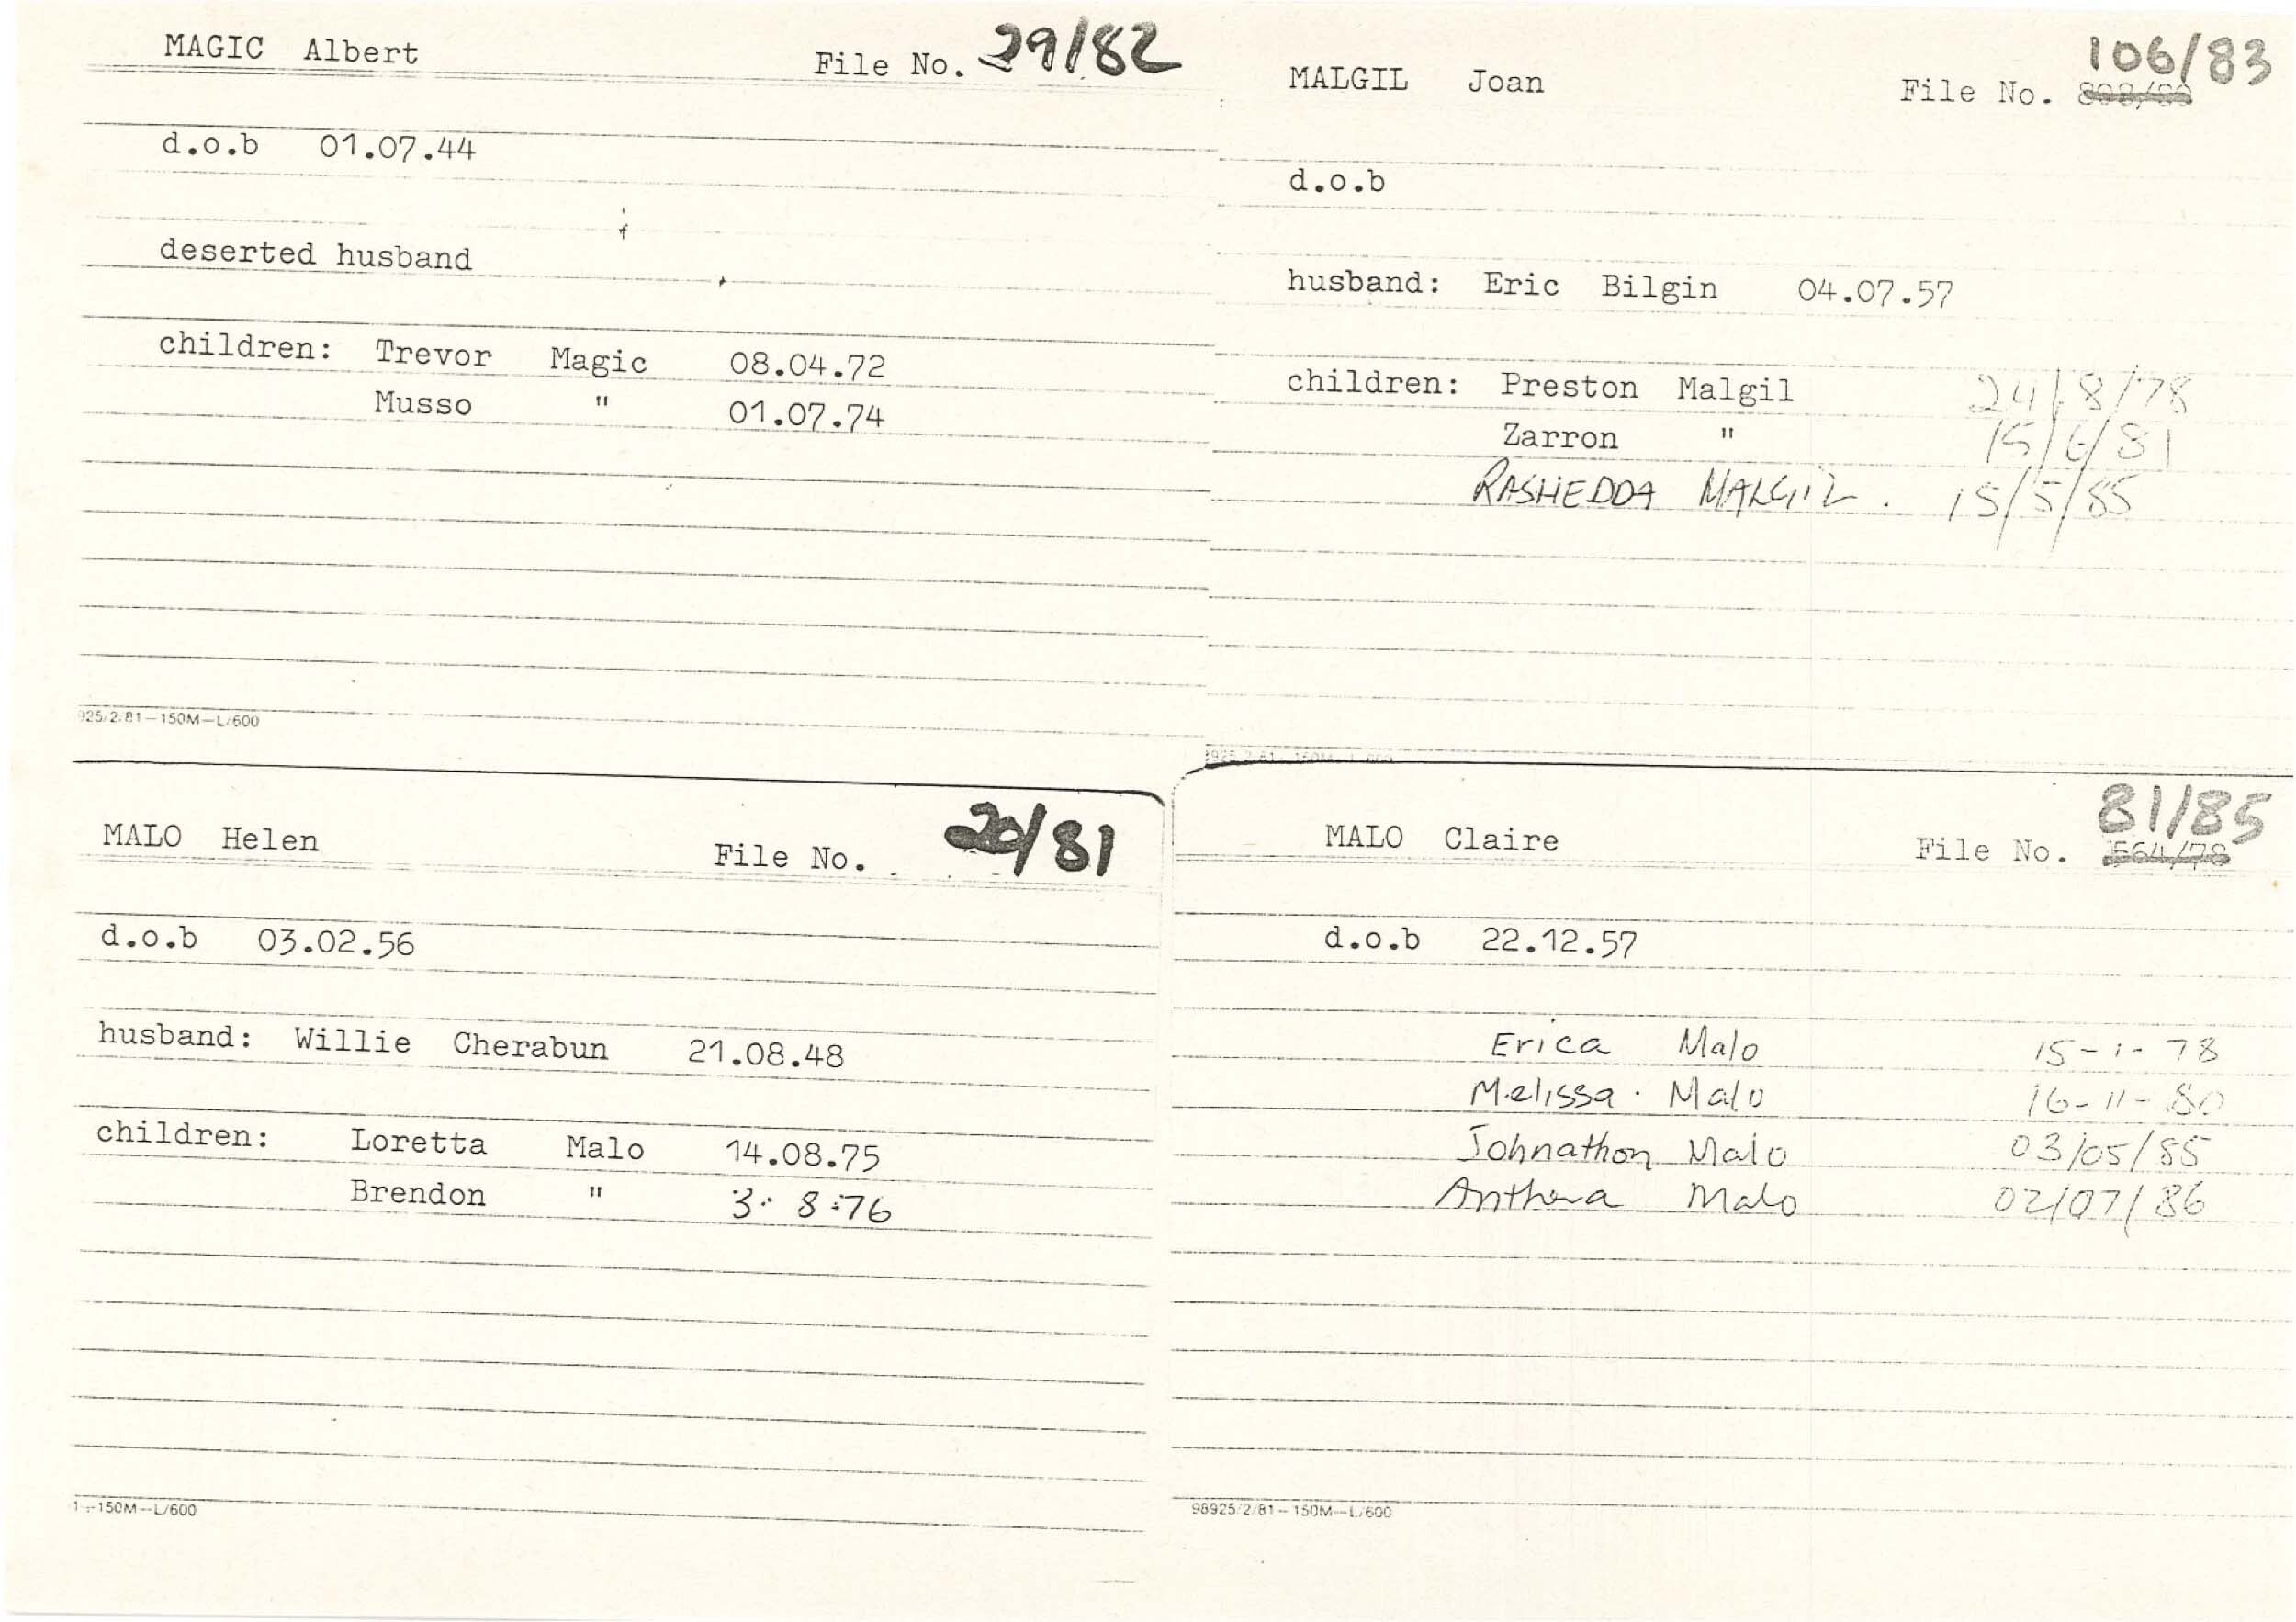 MAGIC Albert File No. 29/82
d.o.b 01.07.44
deserted husband
children: Trevor Magic 08.04.72
Musso " 01.07.74
925/2/81-150M-L/600
106/83
MALGIL Joan File No.
d.o.b
husband: Eric Bilgin 04.07.57
children: Preston Malgil 24/8/78
Zarron " 15/6/81
RASHEDDA MALGIL. 15/5/85
MALO Helen File No. 20/81
d.o.b 03.02.56
husband: Willie Cherabun 21.08.48
children: Loretta Malo 14.08.75
Brendon " 3:8:76
150M-L/600
81/85
MALO Claire File No. 564/78
d.o.b 22.12.57
Erica Malo 15-1-78
Melissa Malo 16-11-80
Johnathon Malo 03/05/85
Malo 02/07/86
98925/2/81-150M-L/600